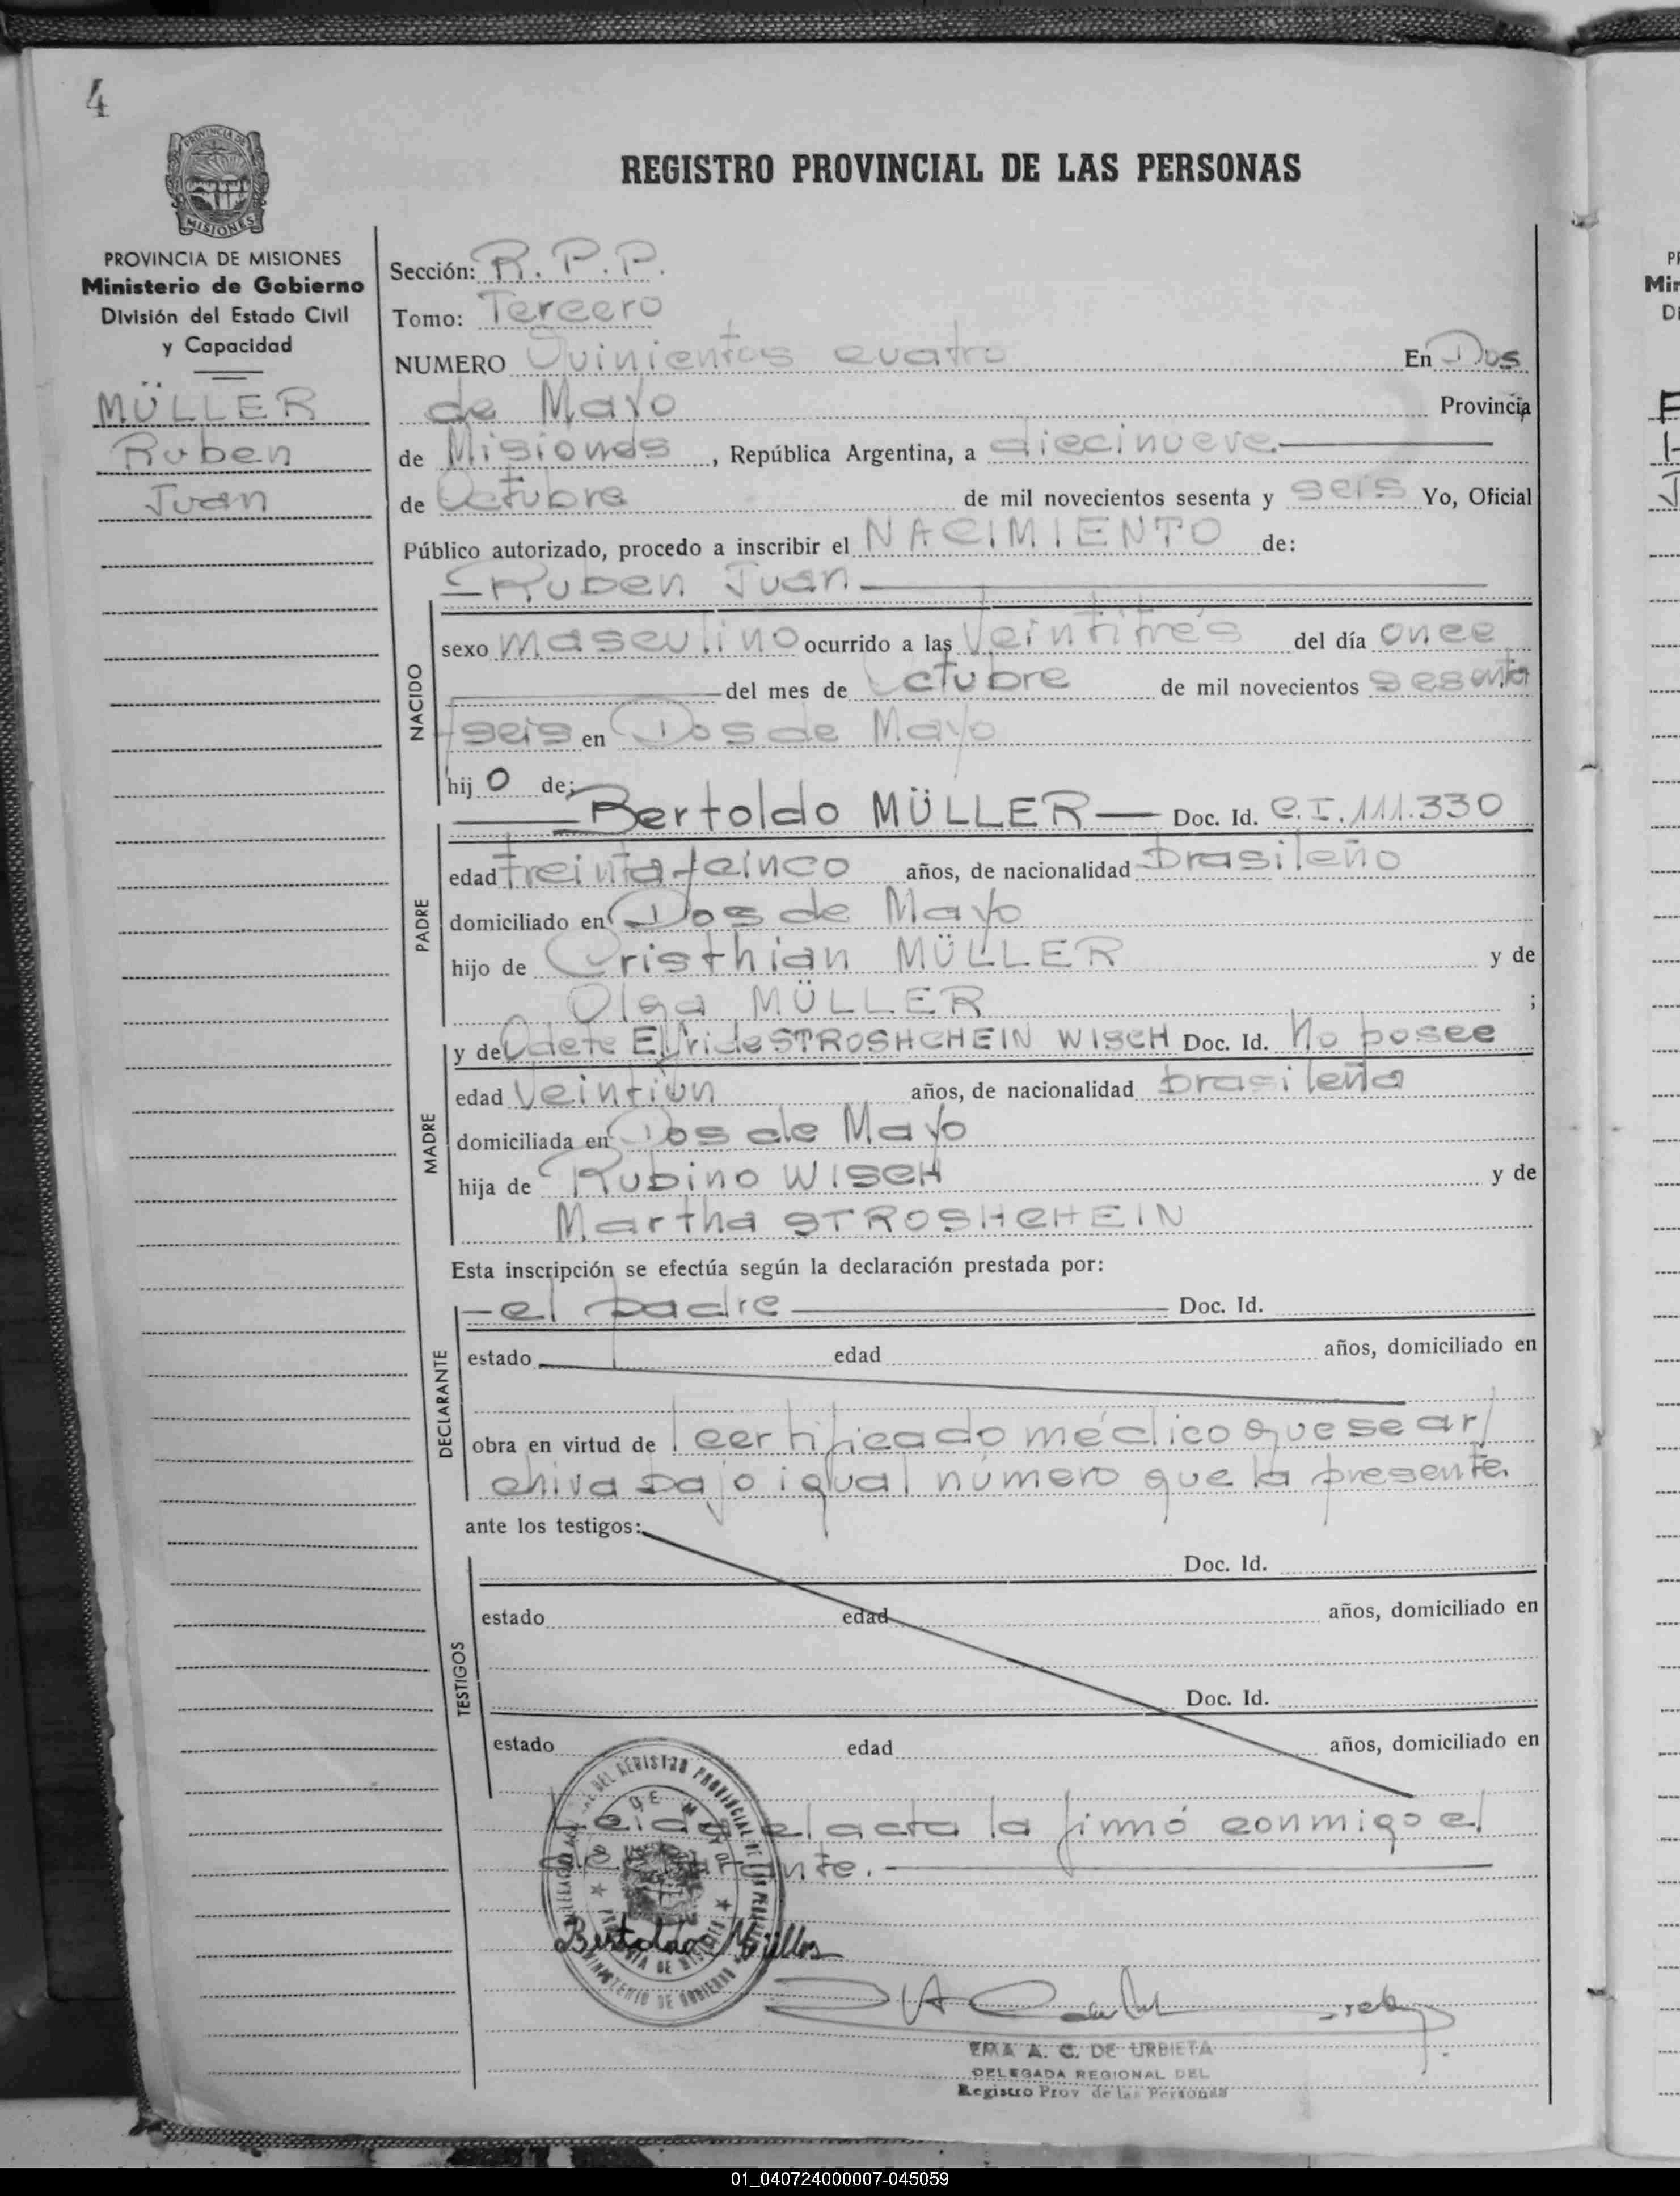 4
PROVINCIA DE
MISIONES
REGISTRO PROVINCIAL DE LAS PERSONAS
PROVINCIA DE MISIONES
Ministerio de Gobierno
División del Estado Civil
y Capacidad
MÜLLER
Ruben
Juan
Sección: R. P. P.
Tomo: Tercero
NUMERO Quinientos cuatro En Dos
de Mayo Provincia
de Misiones, República Argentina, a diecinueve
de Octubre de mil novecientos sesenta y seis Yo, Oficial
Público autorizado, procedo a inscribir el NACIMIENTO de:
Ruben Juan
NACIDO
sexo masculino ocurrido a las veintitrés del día once
del mes de Octubre de mil novecientos sesenta
y seis en Dos de Mayo
hijo de:
Bertoldo MÜLLER Doc. Id. C.I. 111.330
PADRE
edad treinta y cinco años, de nacionalidad brasileño
domiciliado en Dos de Mayo
hijo de Cristhian MÜLLER y de
Olga MÜLLER ;
MADRE
y de Odete Elfride STROSHCHEIN WISCH Doc. Id. No posee
edad Veintiun años, de nacionalidad brasileña
domiciliada en Dos de Mayo
hija de Rubino WISCH y de
Martha STROSHCHEIN
Esta inscripción se efectúa según la declaración prestada por:
DECLARANTE
el padre Doc. Id.
estado edad años, domiciliado en
obra en virtud de certificado médico que se ar/
chiva bajo igual número que la presente.
ante los testigos:
TESTIGOS
Doc. Id.
estado edad años, domiciliado en
Doc. Id.
estado edad años, domiciliado en
Leida el acta la firmó conmigo el
declarante.
Bertoldo Müller
EMA A. C. DE URBIETA
DELEGADA REGIONAL DEL
Registro Prov de las Personas
01_040724000007-045059